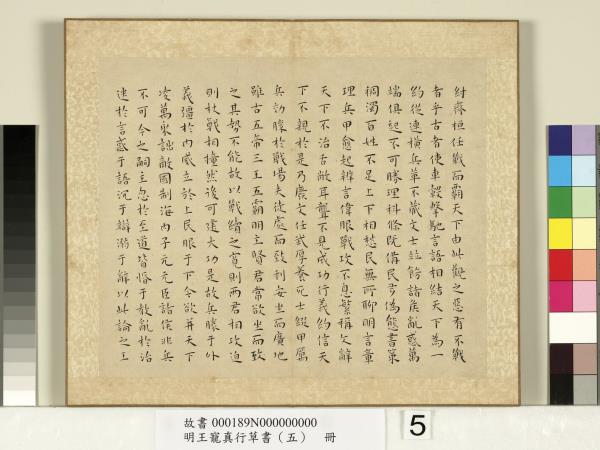 紂齊桓任戰而霸天下由此觀之惡有不戰
者乎古者使車轂擊馳言語相結天下為一
約從連橫兵革不藏文士並飭諸侯亂惑萬
端俱起不可勝理科條既備民多偽態書策
稠濁百姓不足上下相愁民無所聊明言章
理兵甲愈起辨言偉服戰攻不息繁稱文辭
天下不治舌敝耳聾不見成功行義約信天
下不親於是乃廢文任武厚養死士綴甲厲
兵効勝於戰場夫徒處而致利安坐而廣地
雖古五帝三王五霸明主賢君常欲坐而致
之其勢不能故以戰續之寬則兩君相攻迫
則杖戟相撞然後可建大功是故兵勝于外
義彊於內威立於上民服于下今欲并天下
凌萬乘詘敵國制海內子元元臣諸侯非兵
不可今之嗣主忽於至道皆惛于教亂於治
迷於言惑于語沉于辯溺于辭以此論之王
故書 000189N000000000
明王寵真行草書（五） 冊
5